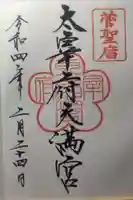 菅聖廟
太宰府天満宮
令和四年二月二十四日